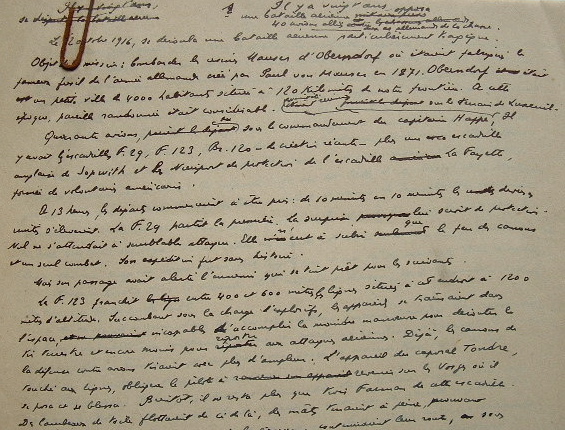 Il y a vingt ans,
Il y a vingt ans
une bataille aérienne opposa
40 avions alliés de la chasse
Le 12 octobre 1916, se déroula une bataille aérienne particulièrement tragique.
Objet de la mission: bombarder les usines Mauser d'Oberndorf où étaient fabriqués le
fameux fusil de l'armée allemande créé par Paul von Mauser en 1871. Oberndorf était
une petite ville de 4000 habitants située à 120 kilomètres de notre frontière. A cette
époque, pareille randonnée était considérable. sur le terrain de Luxeuil-
Quarante avions, sous le commandement du capitaine Happe. Il
y avait l'escadrille F. 29, F. 123, Br. 120 - de création récente - plus une escadrille
anglaise de Sopwith et les Nieuport de protection de l'escadrille La Fayette,
formée de volontaires américains.
A 13 heures, les départs commencèrent à être pris: de 10 minutes en 10 minutes les diverses
unités s'élevèrent. La F. 29 partit la première, la surprise lui servit de protection.
Nul ne s'attendait à semblable attaque. Elle n'eut à subir que le feu des canons
et un seul combat. Son expédition fut sans histoire.
Mais son passage avait alerté l'ennemi qui se tint prêt pour les suivants.
La F. 123 franchit entre 400 et 600 mètres les lignes situées à cet endroit à 1200
mètres d'altitude. Succombant sous la charge d'explosifs, les appareils se traînaient dans
l'espace, incapables d'accomplir la moindre manœuvre pour dérouter le
tir terrestre et encore moins pour riposter aux attaques aériennes. Déjà, les canons de
la défense contre avions tiraient avec plus d'ampleur. L'appareil du caporal Tondre,
touché aux lignes, obligea le pilote à revenir sur les Vosges où il
se posa et se blessa. Bientôt, il ne resta plus que trois Farman de cette escadrille.
Des lambeaux de toile flottaient de ci de là, des mâts tenaient à peine,
continuèrent leur route,